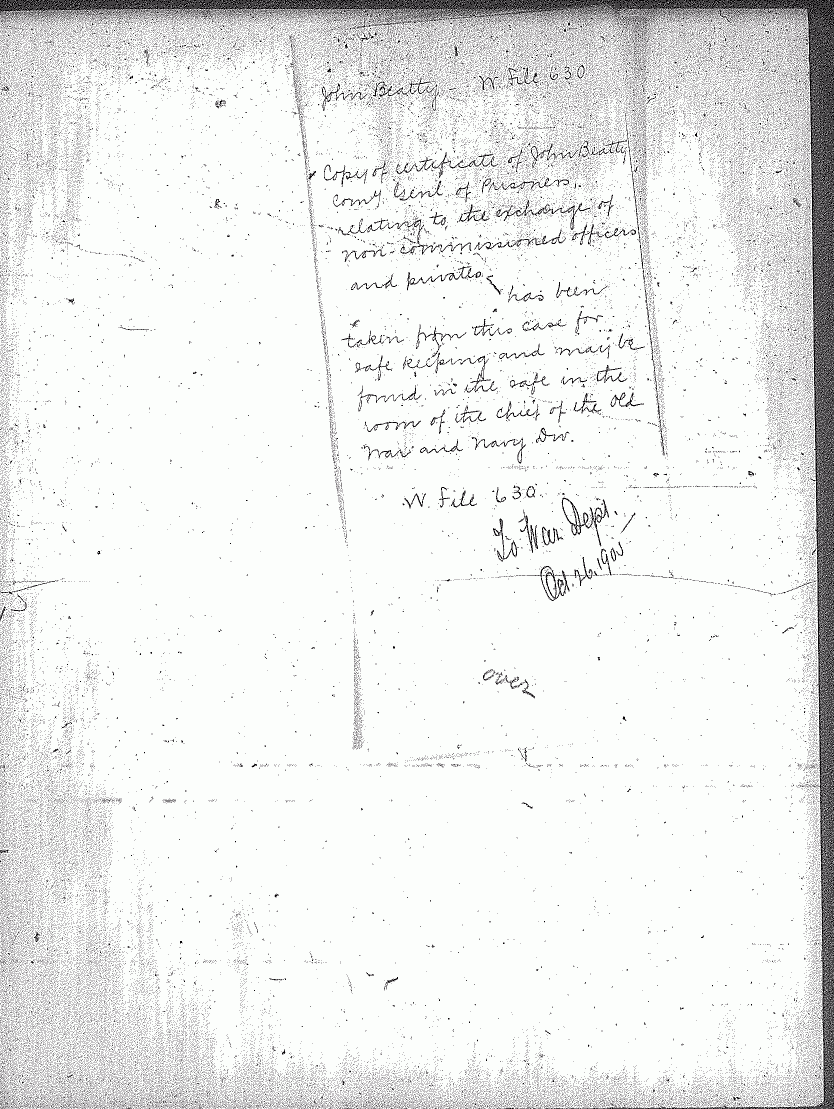 John Beatty - W. File 630
Copy of certificate of John Beatty
Com'y Genl. of Prisoners,
relating to the exchange of
non-commissioned officers
and privates
has been
taken from this case for
safe keeping and may be
found in the safe in the
room of the chief of the Old
War and Navy Div.
W. File 630.
To War Dept.
Oct. 26. 190
over